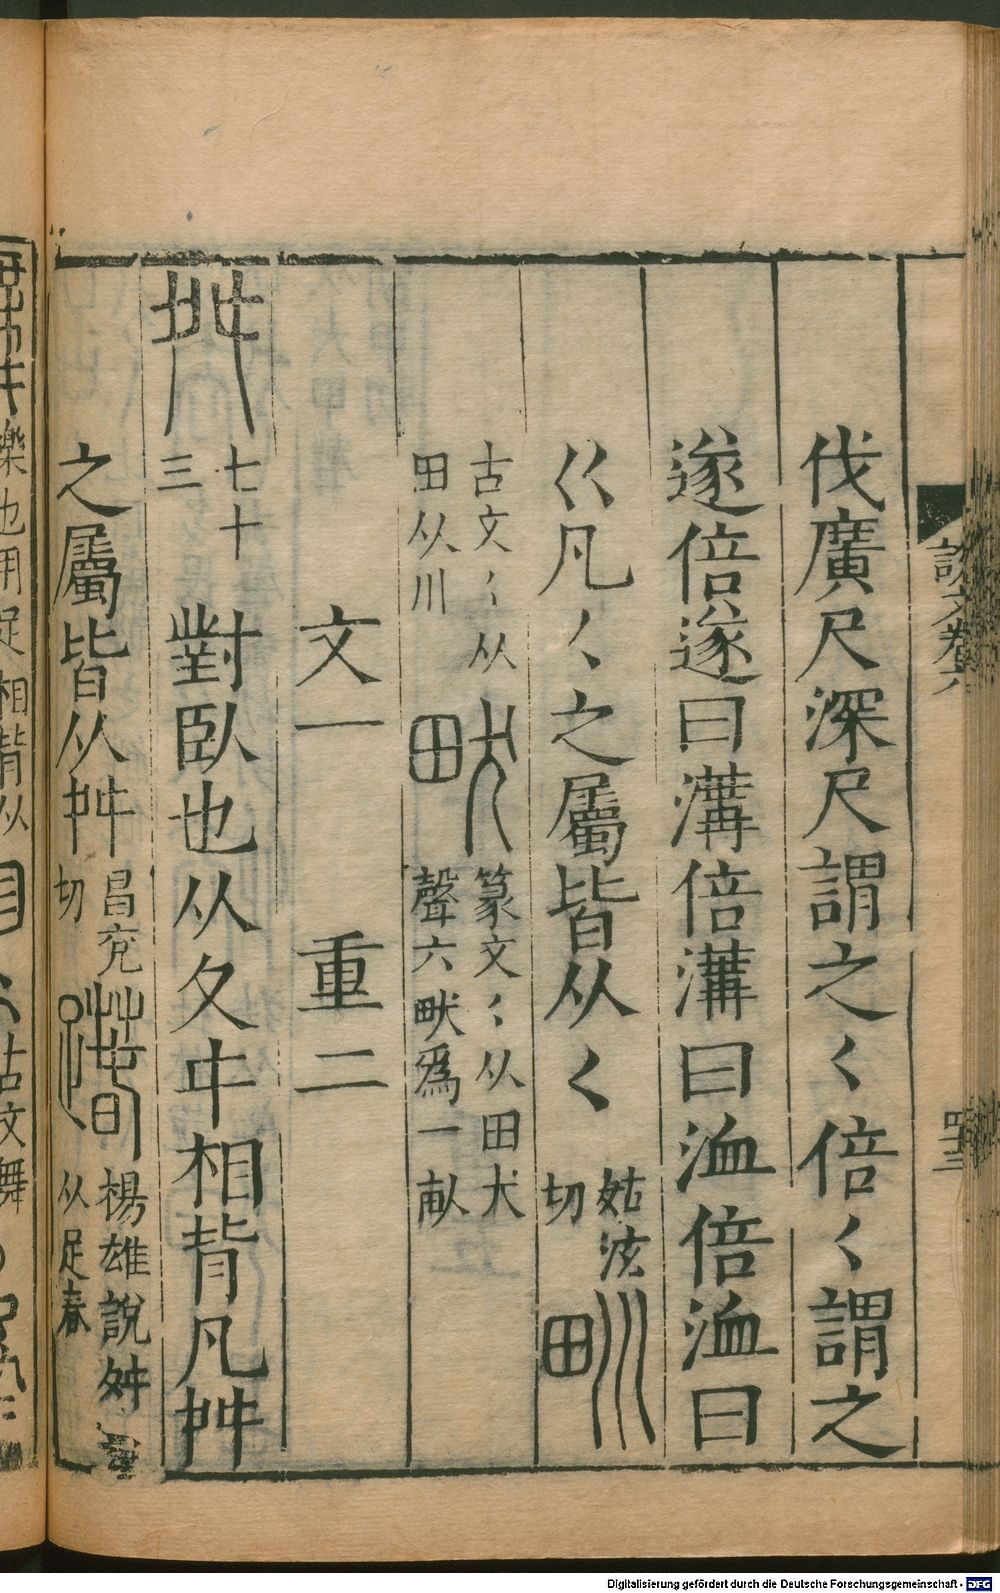 說文卷八
四十三
伐廣尺深尺謂之𡿨倍𡿨謂之
遂倍遂曰溝倍溝曰洫倍洫曰
巜凡𡿨之屬皆从𡿨姑泫切甽
古文𡿨从田从川畎篆文𡿨从田犬聲六畎爲一畝
文一 重二
舛七十三 對臥也从夂㐄相背凡舛
之屬皆从舛昌兖切䠢楊雄說舛从足春
樂也用足相背从
古文舞
Digitalisierung gefördert durch die Deutsche Forschungsgemeinschaft - DFG